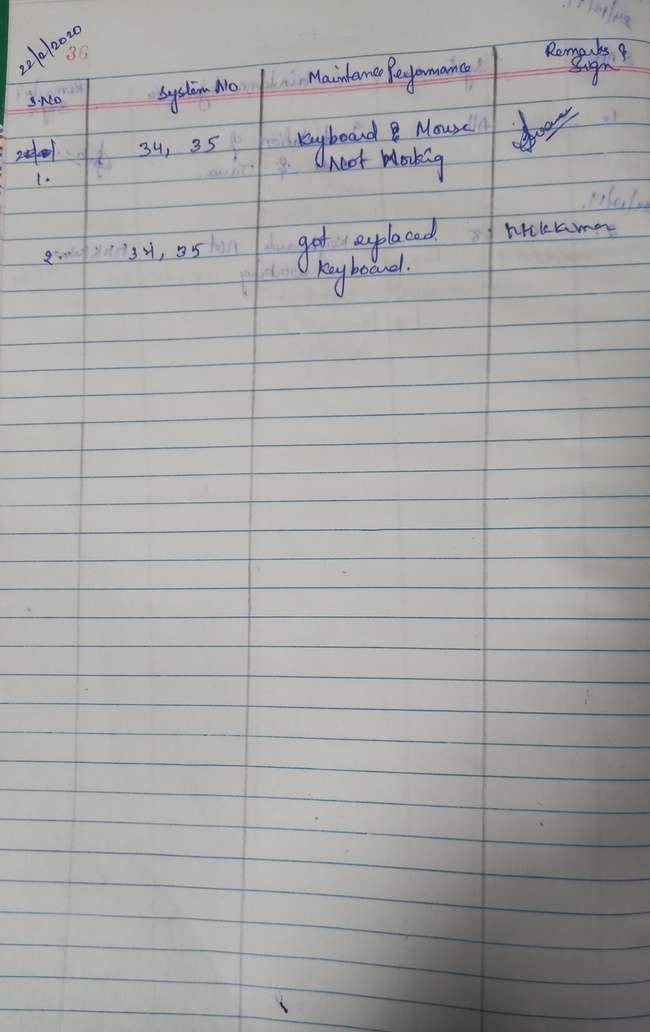 22/2/2020
36
S.No System No Maintance Performance Remarks & Sign
1. 34, 35 Keyboard & Mouse
Not Workig
2. 34, 35 got replaced
Keyboard.